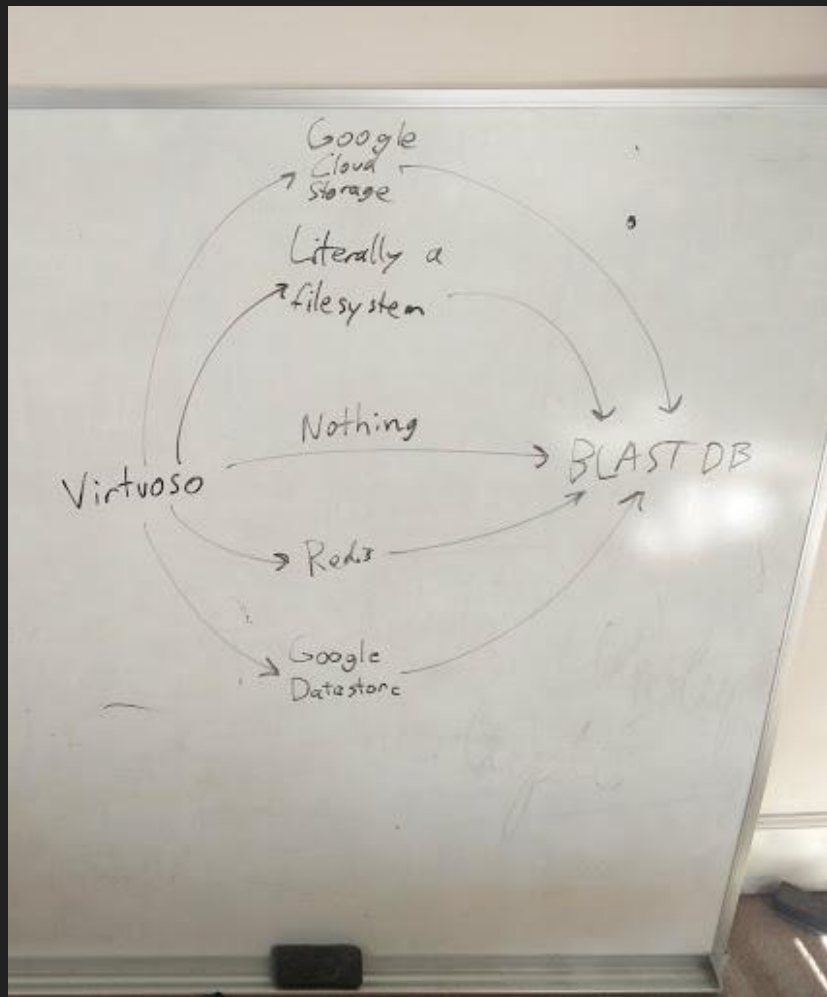 Google
Cloud
Storage
Literally a
filesystem
Nothing
Virtuoso
BLAST DB
Redis
Google
Datastore